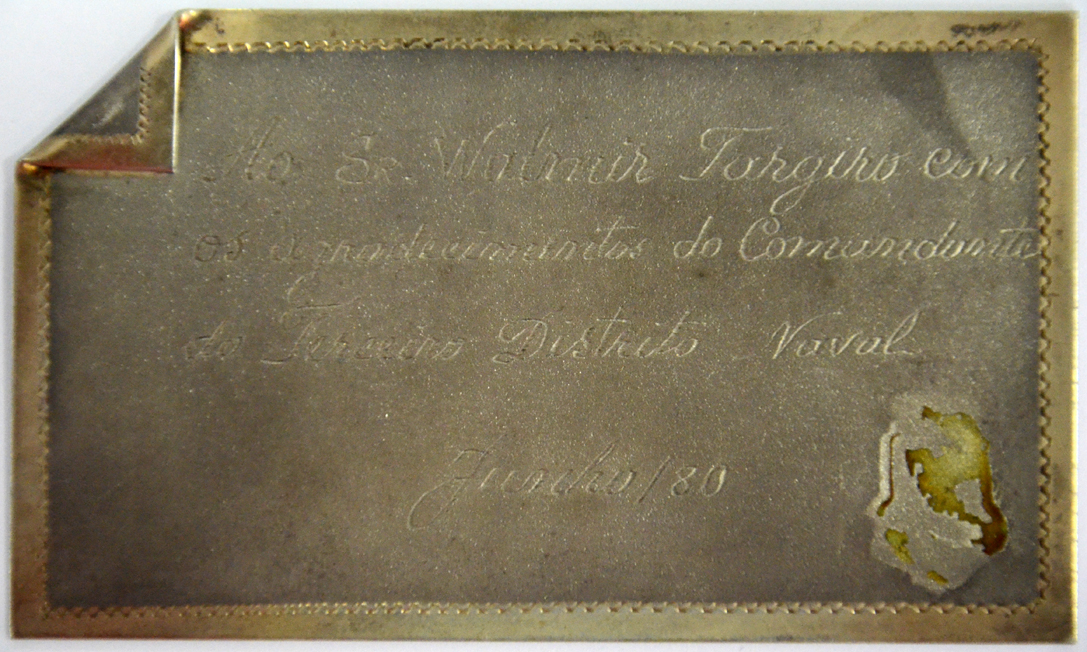 Ao Sr Walmir Targino com
os agradecimentos do Comandante
do Terceiro Distrito Naval
Junho/80